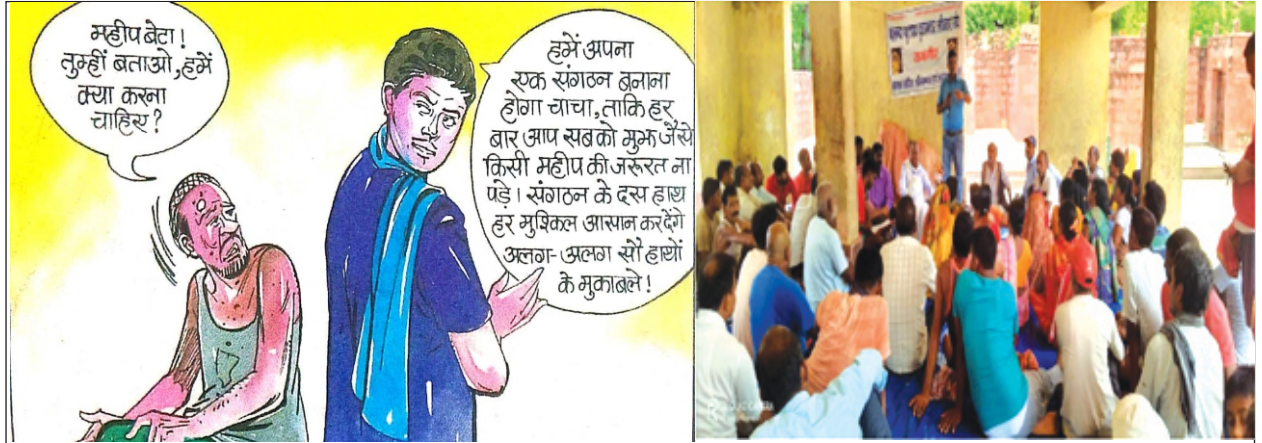 महीप बेटा!
तुम्हीं बताओ, हमें
क्या करना
चाहिए?
हमें अपना
एक संगठन बनाना
होगा चाचा, ताकि हर
बार आप सबको मुझ जैसे
किसी महीप की जरूरत ना
पड़े। संगठन के दस हाथ
हर मुश्किल आसान कर देंगे
अलग-अलग सौ हाथों
के मुकाबले!